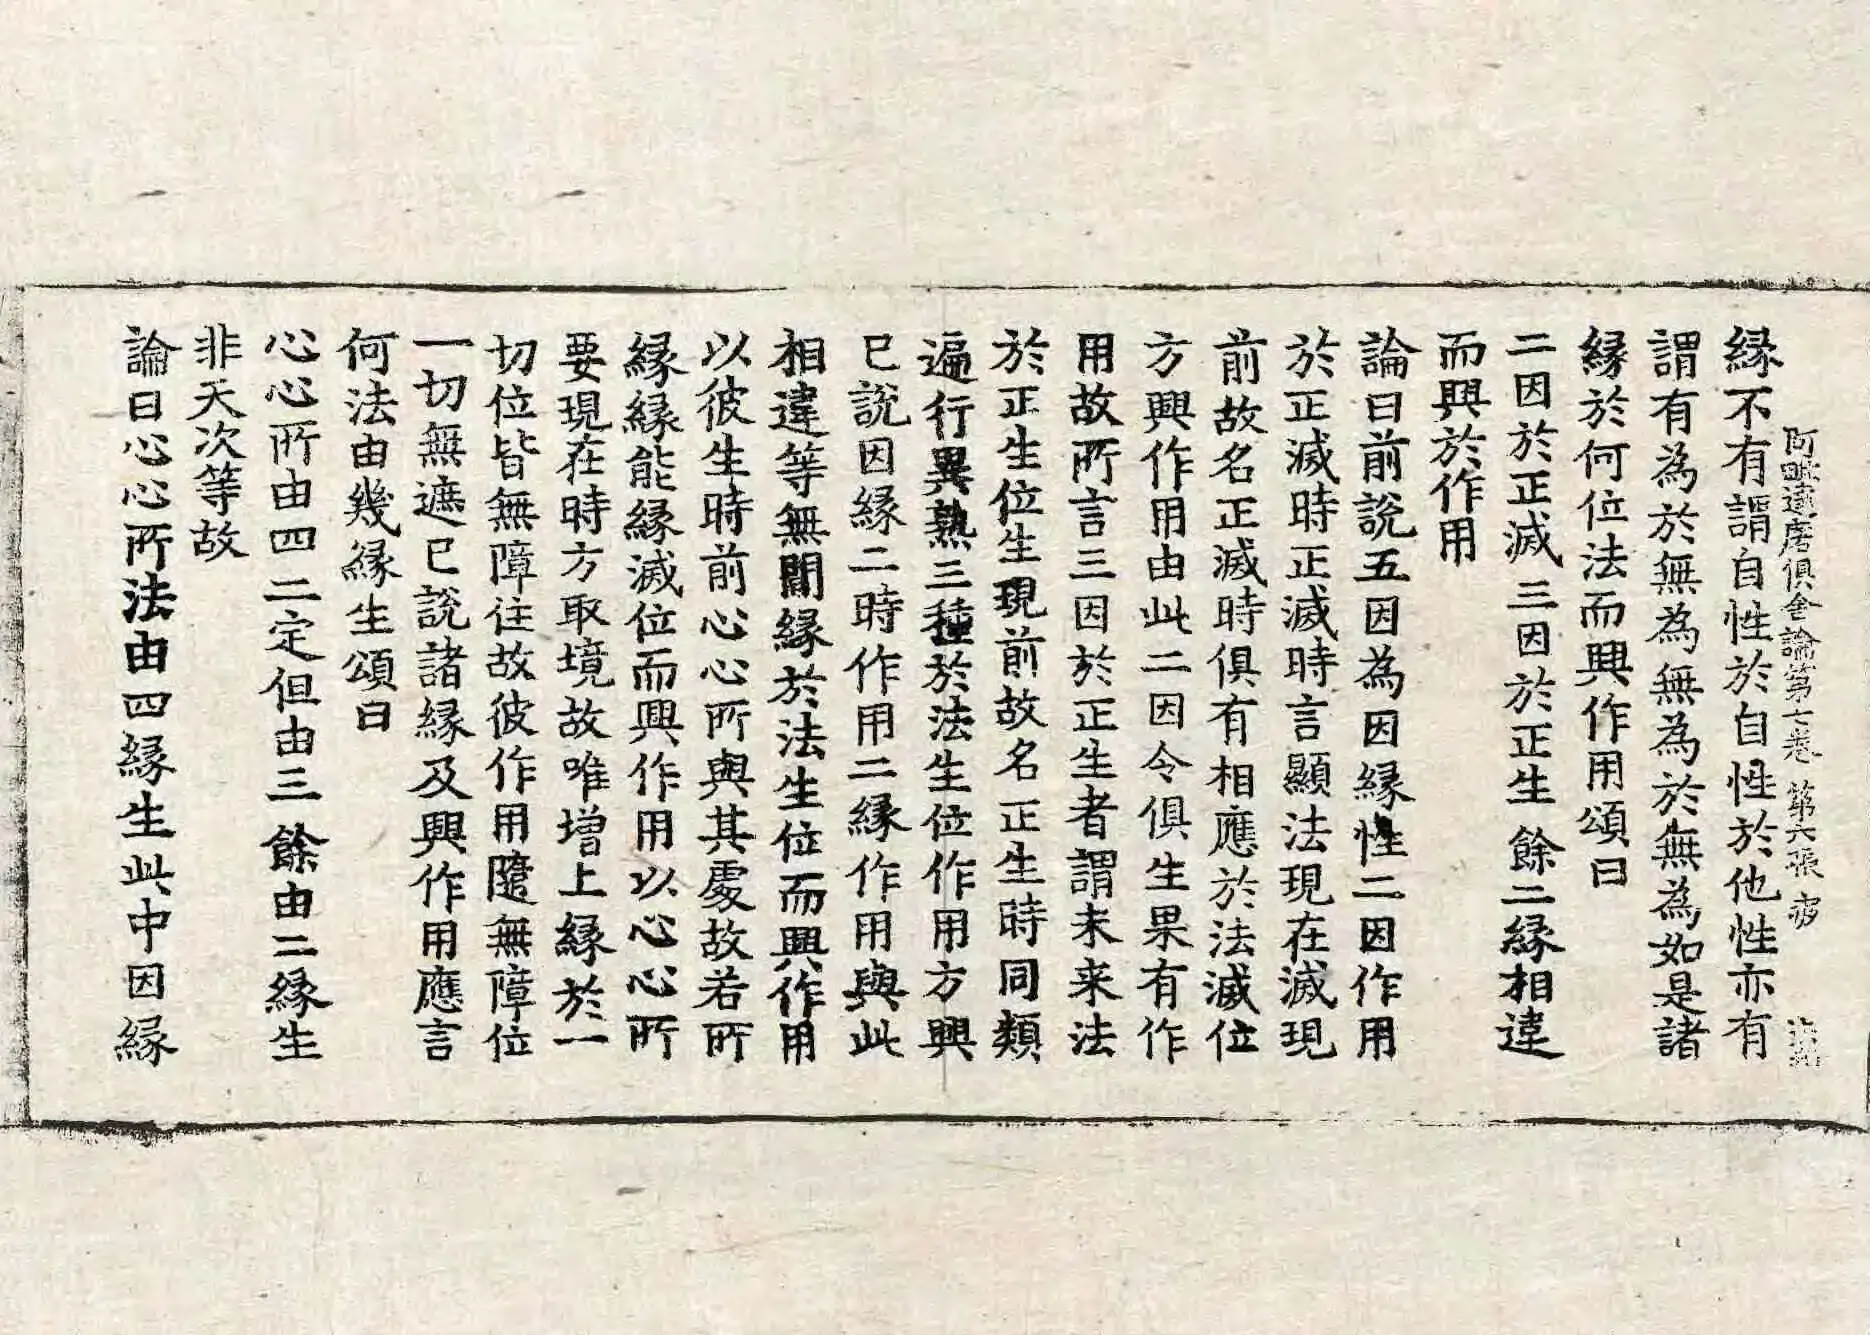 阿毗達磨俱舍論第七卷 第六張
緣不有謂自性於自性於他性亦有
謂有為於無為無為於無為如是諸
緣於何位法而興作用頌曰
二因於正滅 三因於正生 餘二緣相違
而興於作用
論曰前說五因為因緣性二因作用
於正滅時正滅時言顯法現在滅現
前故名正滅時俱有相應於法滅位
方興作用由此二因令俱生果有作
用故所言三因於正生者謂未来法
於正生位生現前故名正生時同類
遍行異熟三種於法生位作用方興
已說因緣二時作用二緣作用與此
相違等無間緣於法生位而興作用
以彼生時前心心所與其處故若所
緣緣能緣滅位而興作用以心心所
要現在時方取境故唯增上緣於一
切位皆無障住故彼作用隨無障位
一切無遮已說諸緣及興作用應言
何法由幾緣生頌曰
心心所由四 二定但由三 餘由二緣生
非天次等故
論曰心心所法由四緣生此中因緣